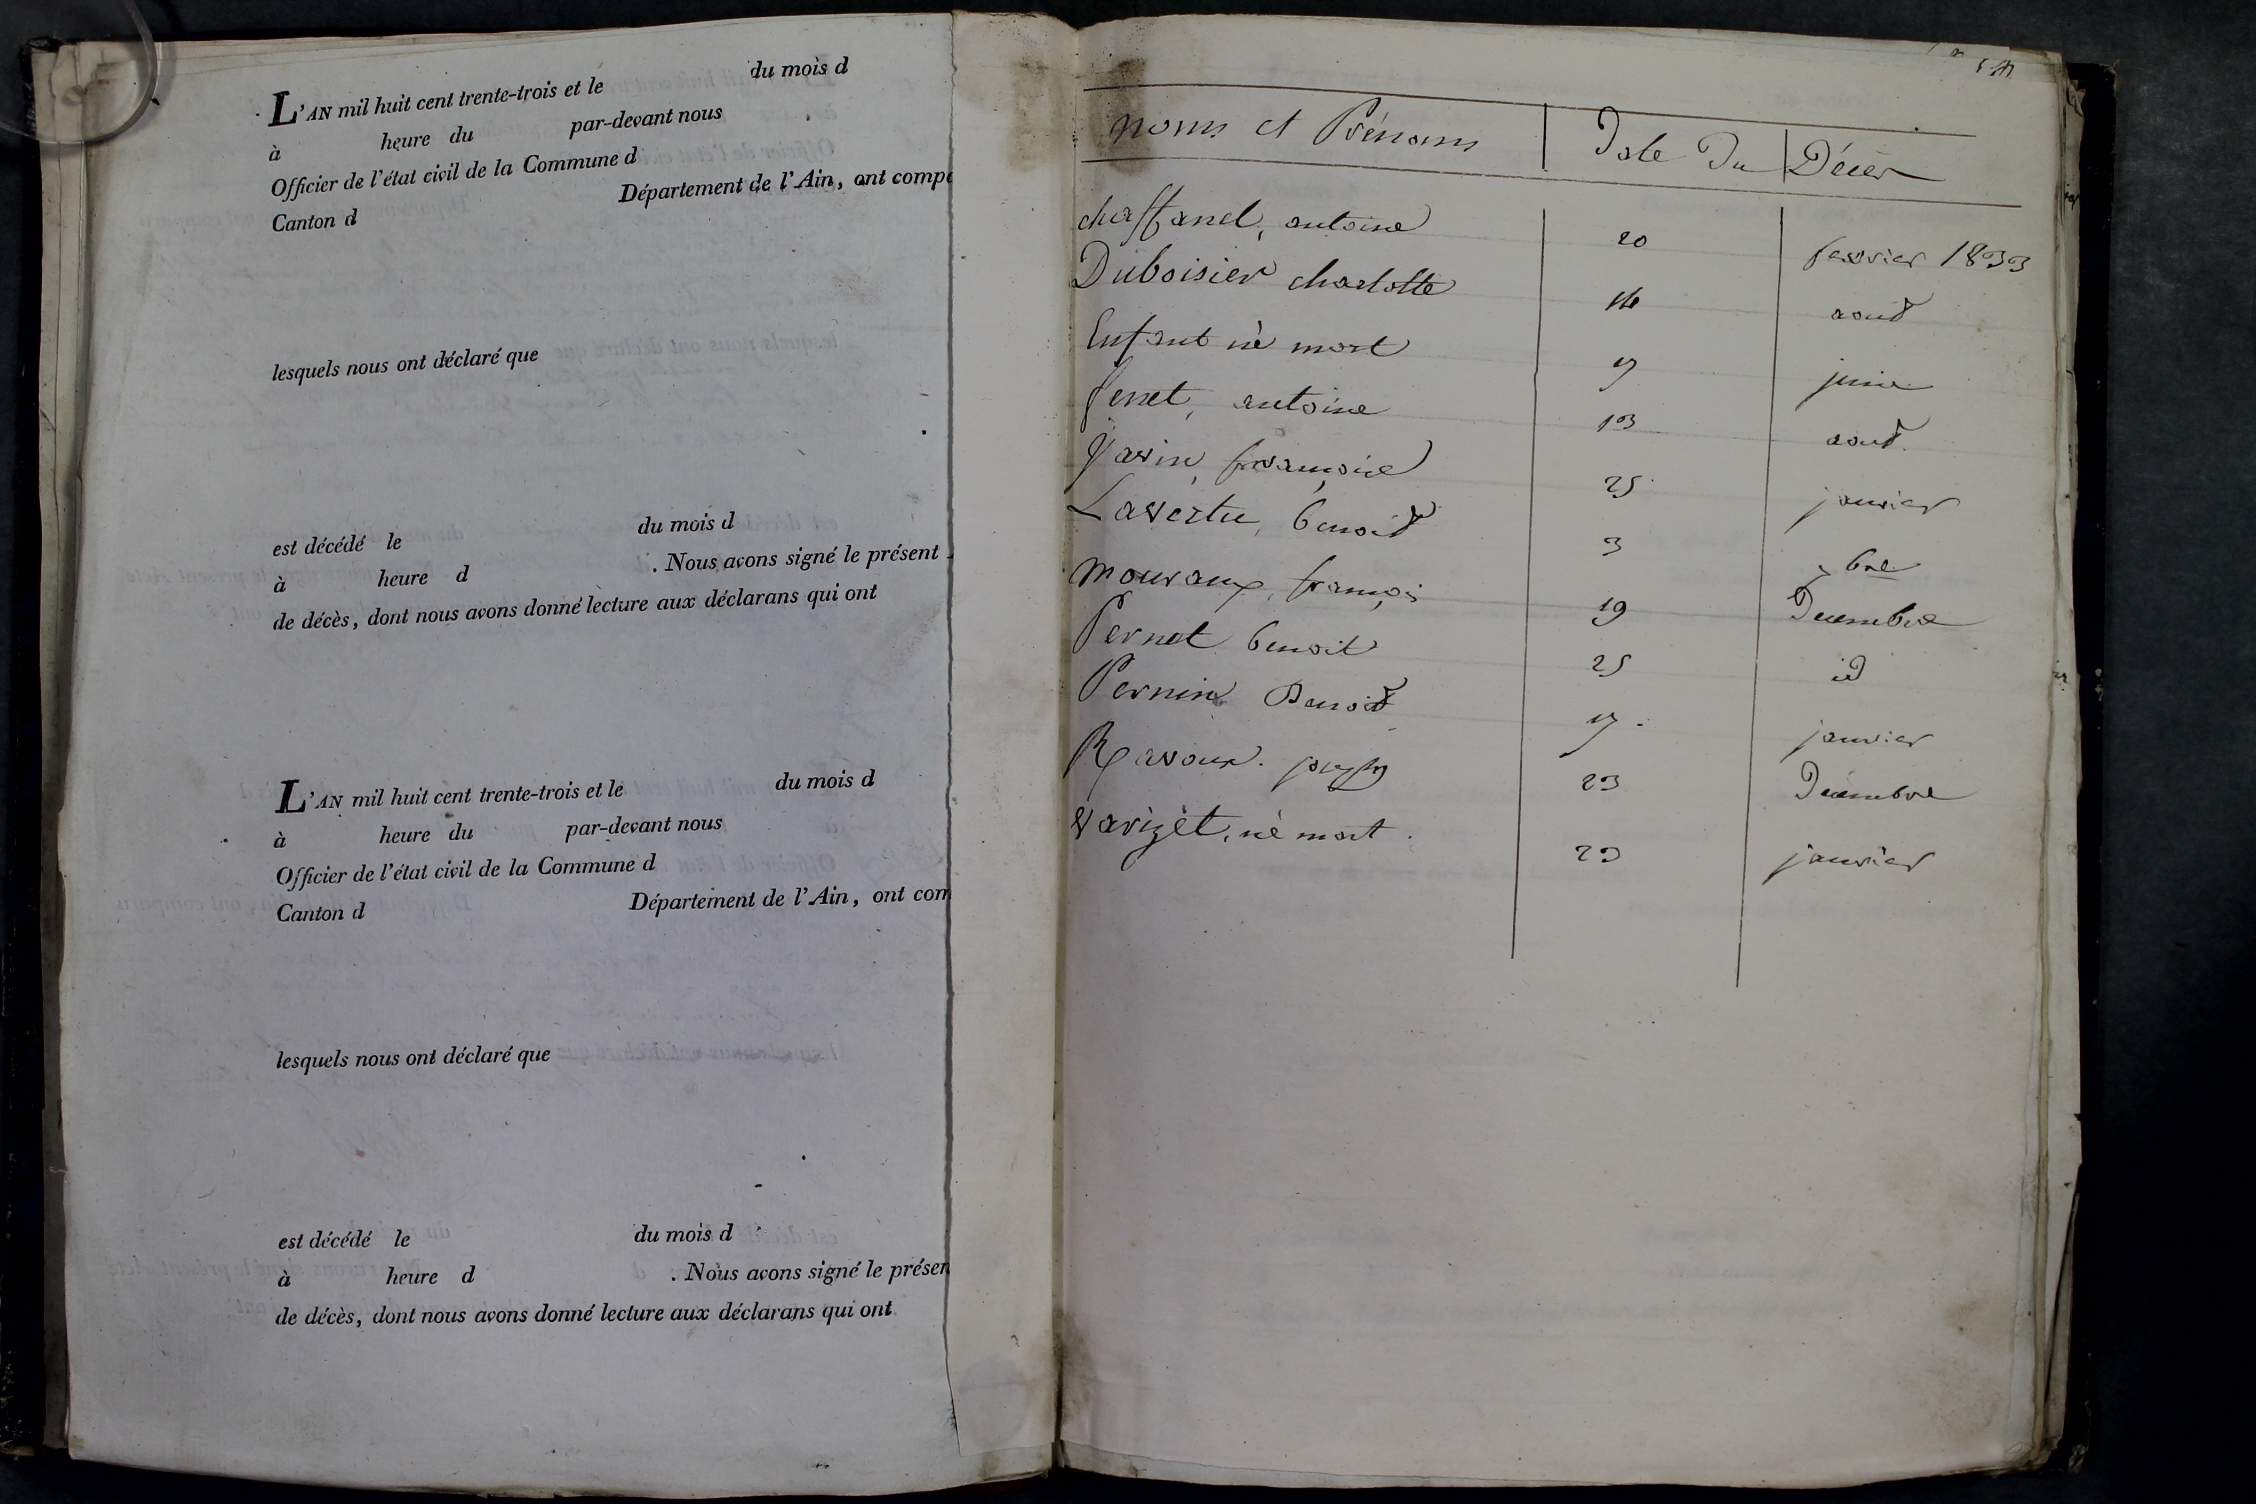 L'AN mil huit cent trente-trois et le du mois d
à heure du par-devant nous
Officier de l'état civil de la Commune d
Canton d Département de l'Ain, ont comp
lesquels nous ont déclaré que
est décédé le du mois d
à heure d . Nous avons signé le présent
de décès, dont nous avons donné lecture aux déclarans qui ont
L'AN mil huit cent trente-trois et le du mois d
à heure du par-devant nous
Officier de l'état civil de la Commune d
Canton d Département de l'Ain, ont com
lesquels nous ont déclaré que
est décédé le du mois d
à heure d . Nous avons signé le présen
de décès, dont nous avons donné lecture aux déclarans qui ont
noms et Prénoms Date Du Décès
chaffanel, antoine 20 fevrier 1833
Duboisier charlotte 16 aout
Enfant né mort 17 juin
fenet, antoine 13 aout
Javin, françoise 25 janvier
Lavertu, benoit 3 bre
Mouraux, françois 19 Decembre
Pernet benoit 25 id
Pernin Benoit 17 janvier
Ravoux. joseph 23 Decembre
Varizet, né mort. 23 janvier